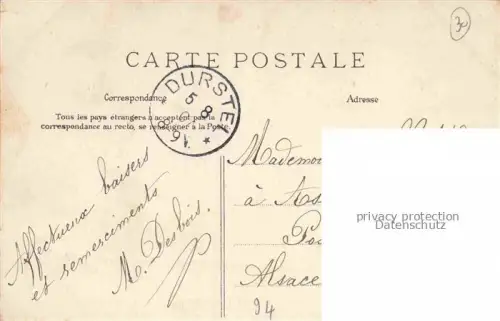 CARTE POSTALE
Correspondance
Adresse
Tous les pays étrangers n'acceptent pas la
correspondance au recto, se renseigner à la Poste.
DURSTEL
5 8
Affectueux baisers
et remerciments
M. Desbois.
Mademoi
à As
Alsace
94
privacy protection
Datenschutz